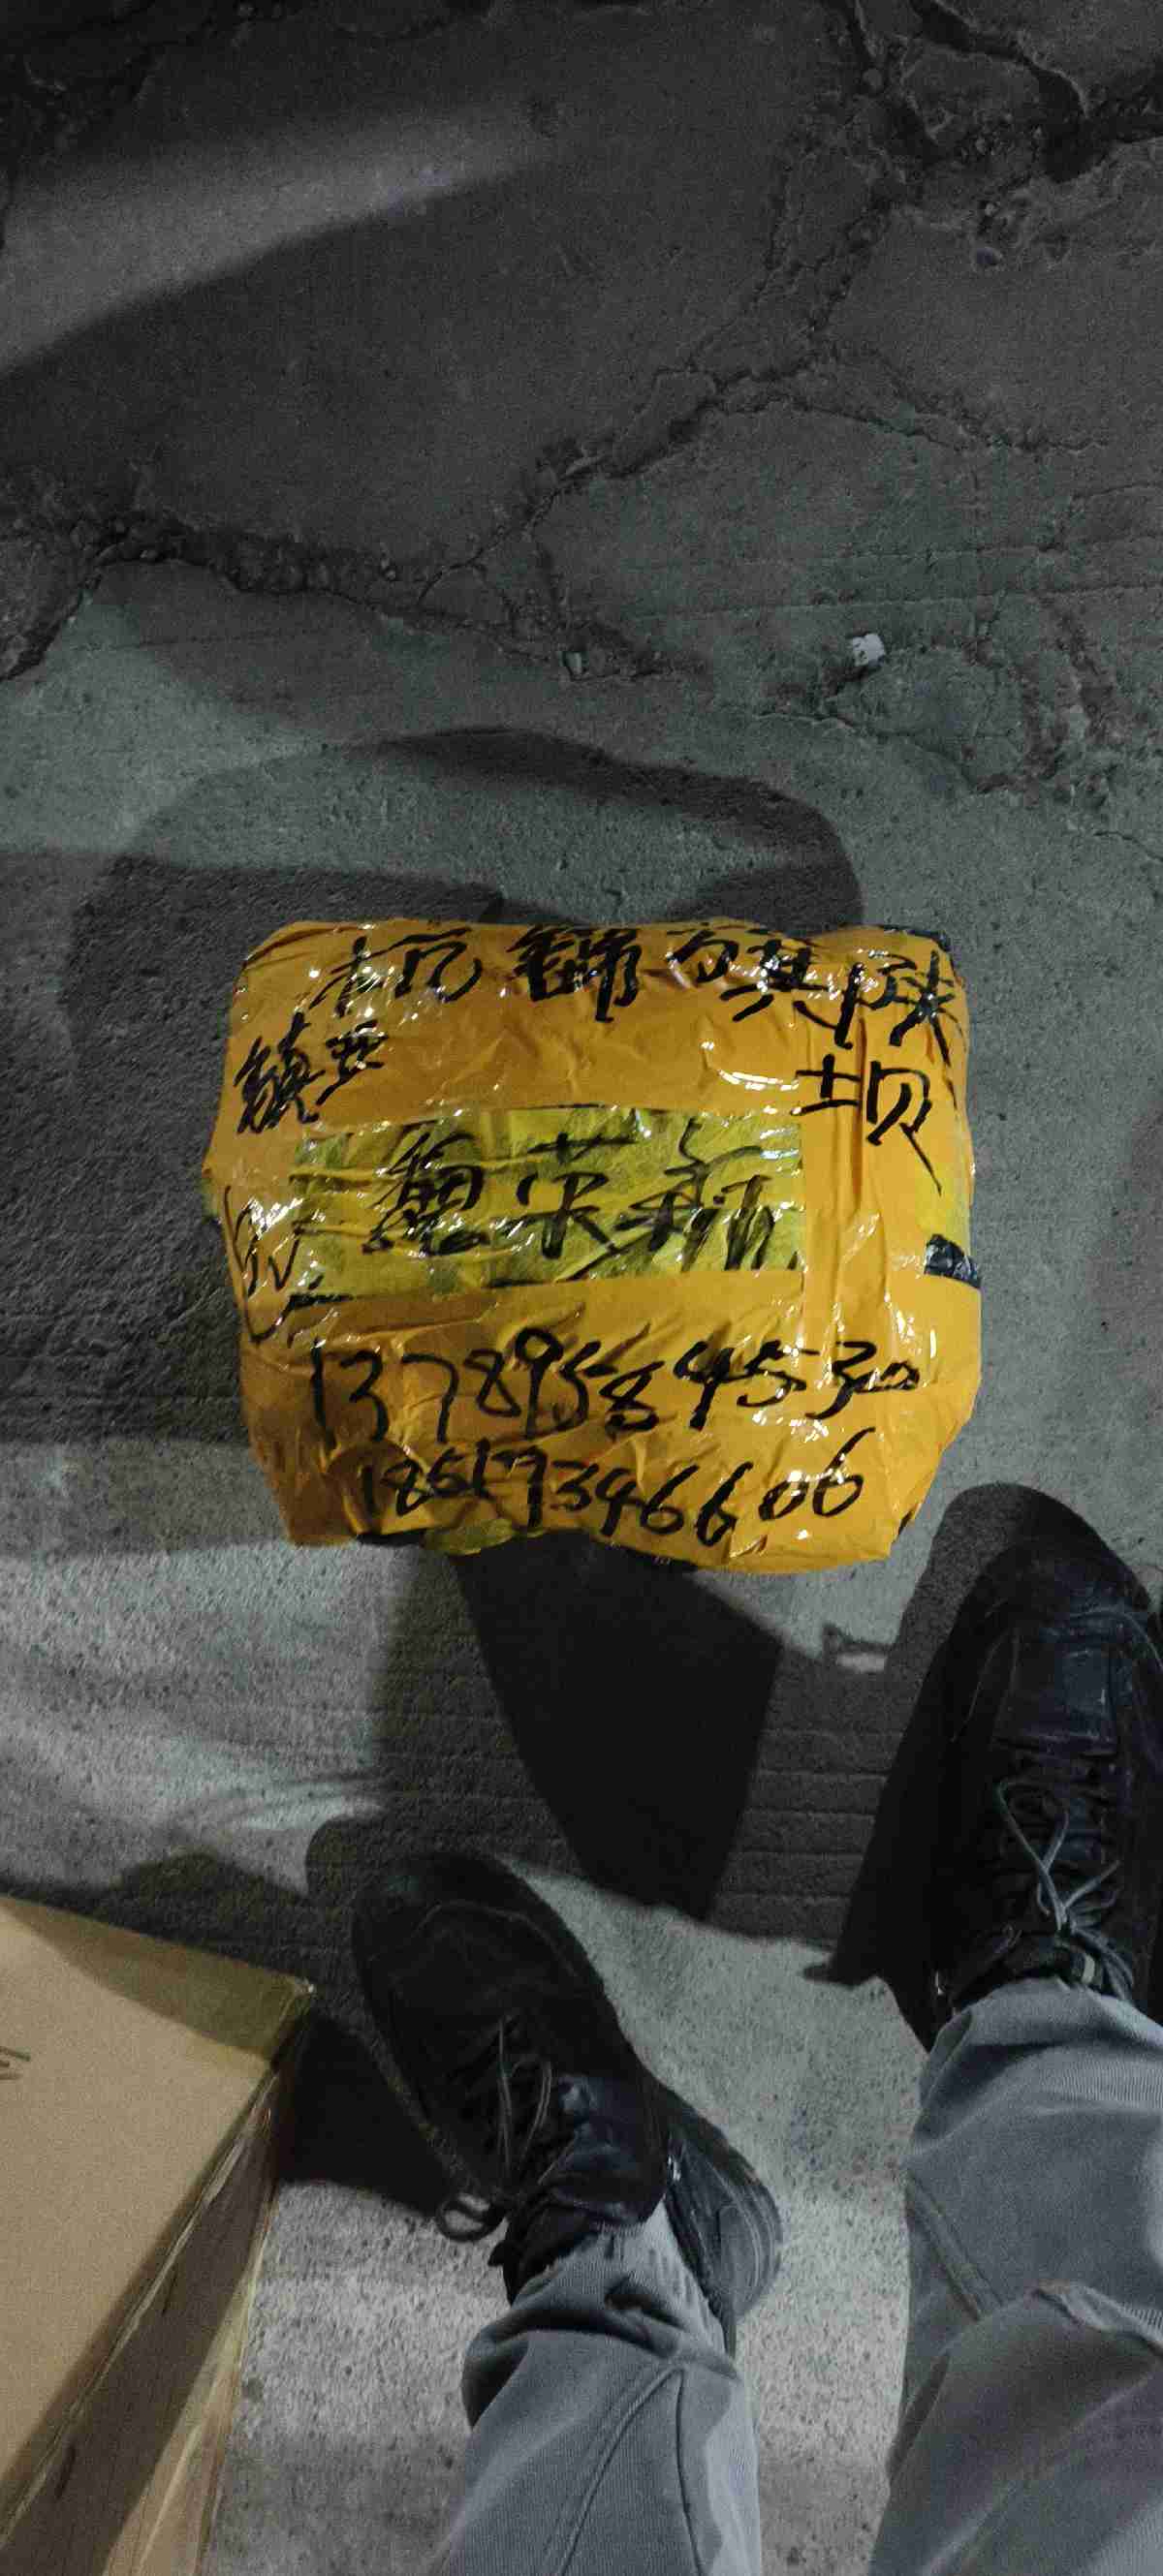 杭錦旗陕
坝
镇
魏荣新
13789584530
18517396606